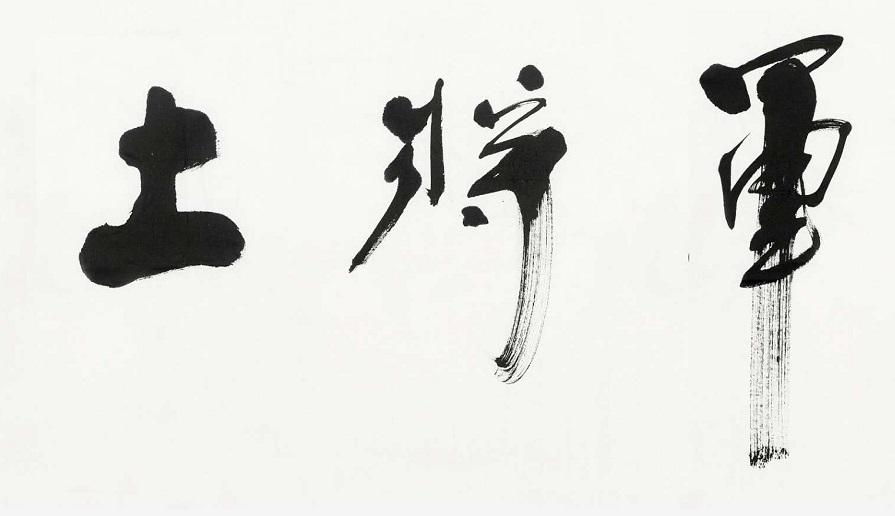 土將軍